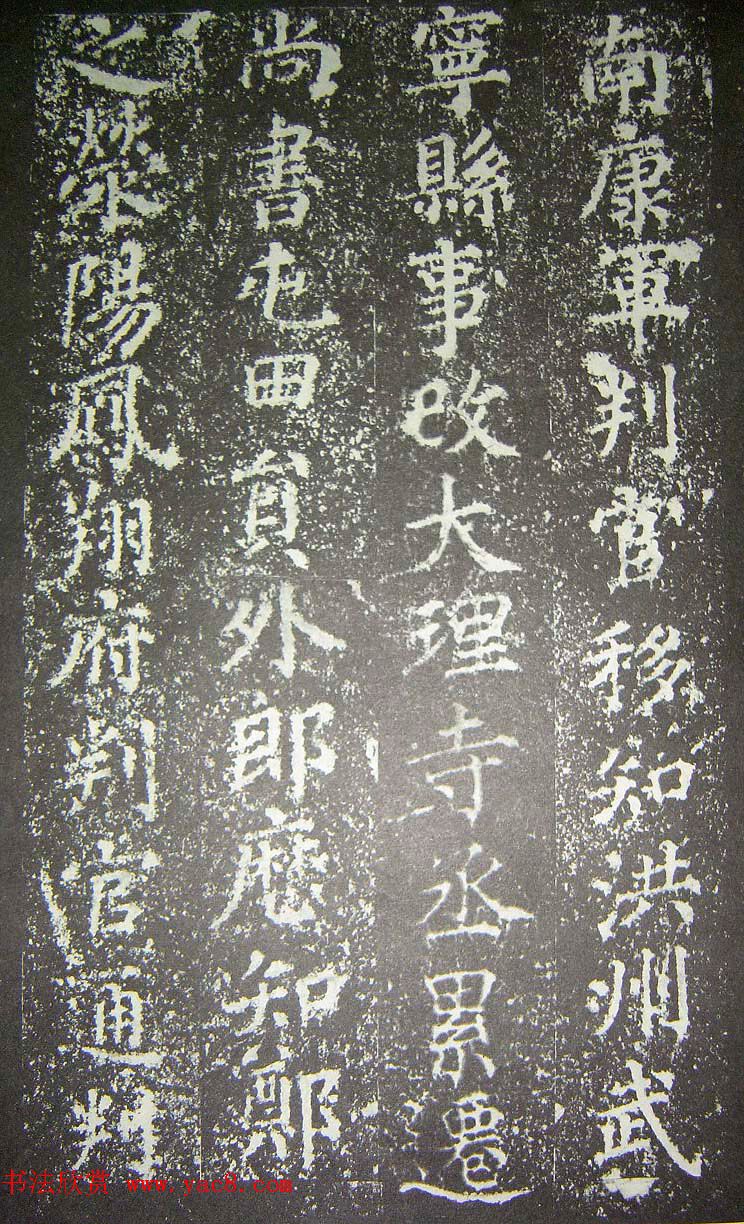 南康軍判官移知洪州武
寧縣事改大理寺丞累遷
尚書屯田貟外郎歷知鄭
之滎陽鳳翔府判官通判
书法欣赏 www.yac8.com